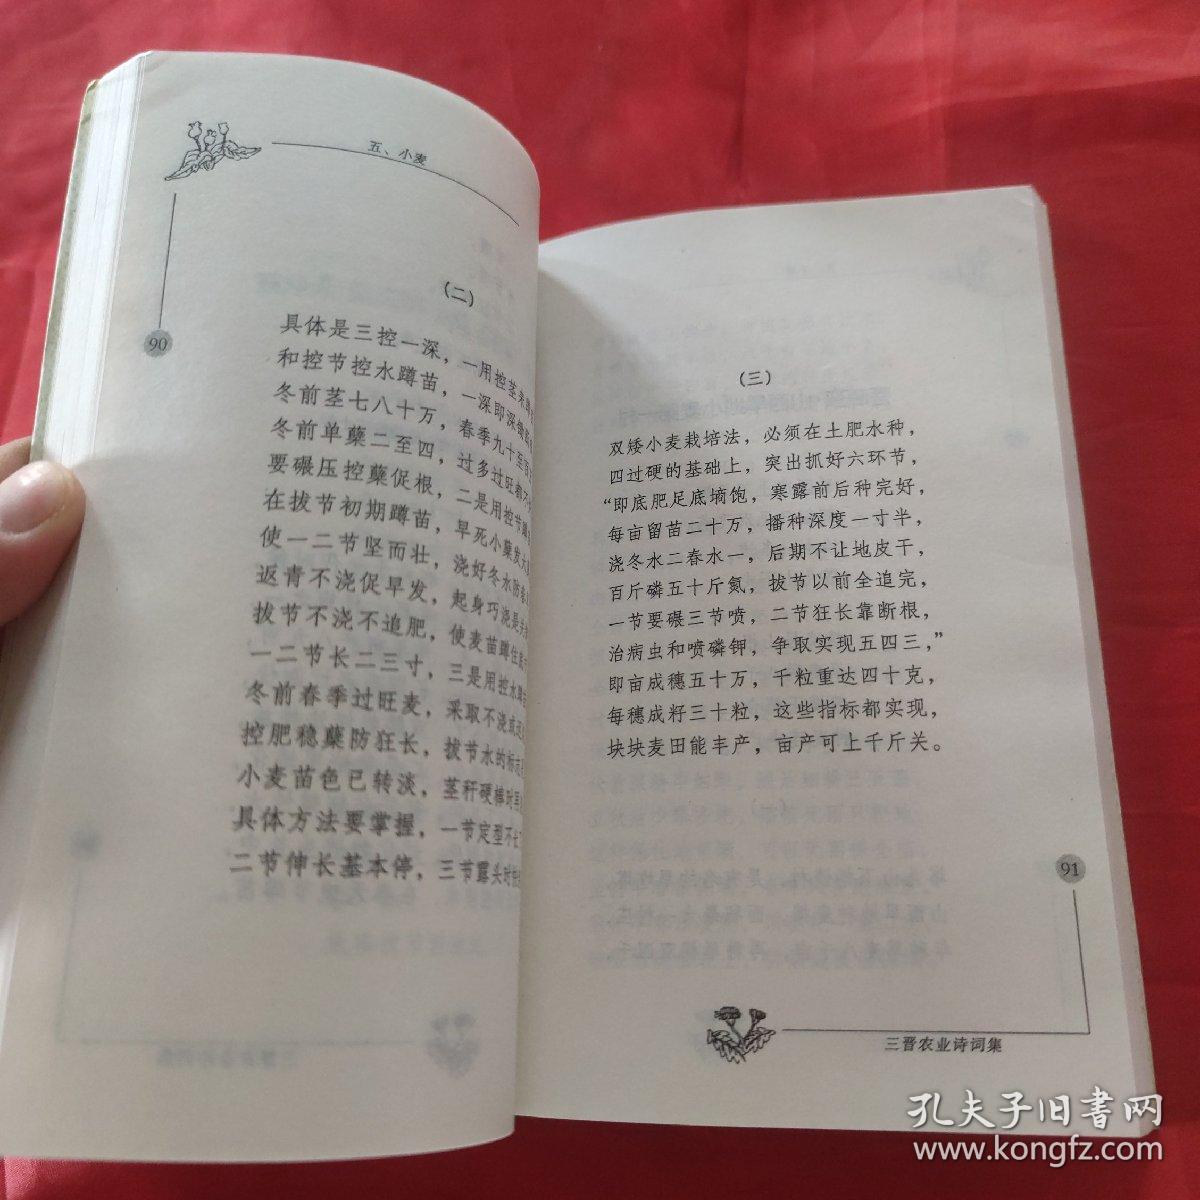 五、小麦
90
（二）
具体是三控一深，一用控茎来蹲
和控节控水蹲苗，一深即深锄
冬前茎七八十万，春季九十至百
冬前单蘖二至四，过多过旺都不
要碾压控蘖促根，二是用控节蹲
在拔节初期蹲苗，早死小蘖发大
使一二节坚而壮，浇好冬水防
返青不浇促早发，起身巧浇是关
拔节不浇不追肥，使麦苗蹲住
一二节长二三寸，三是用控水蹲
冬前春季过旺麦，采取不浇或
控肥稳蘖防狂长，拔节水的标
小麦苗色已转淡，茎秆硬棒时
具体方法要掌握，一节定型不
二节伸长基本停，三节露头时
（三）
双矮小麦栽培法，必须在土肥水种，
四过硬的基础上，突出抓好六环节，
“即底肥足底墒饱，寒露前后种完好，
每亩留苗二十万，播种深度一寸半，
浇冬水二春水一，后期不让地皮干，
百斤磷五十斤氮，拔节以前全追完，
一节要碾三节喷，二节狂长靠断根，
治病虫和喷磷钾，争取实现五四三，”
即亩成穗五十万，千粒重达四十克，
每穗成籽三十粒，这些指标都实现，
块块麦田能丰产，亩产可上千斤关。
91
三晋农业诗词集
孔夫子旧书网
www.kongfz.com